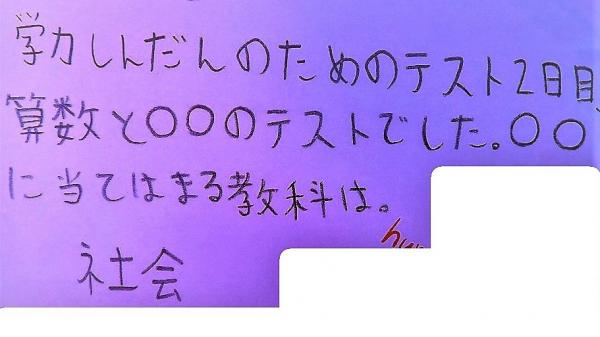 学力しんだんのためのテスト2日目、
算数と〇〇のテストでした。〇〇
に当てはまる教科は。
社会